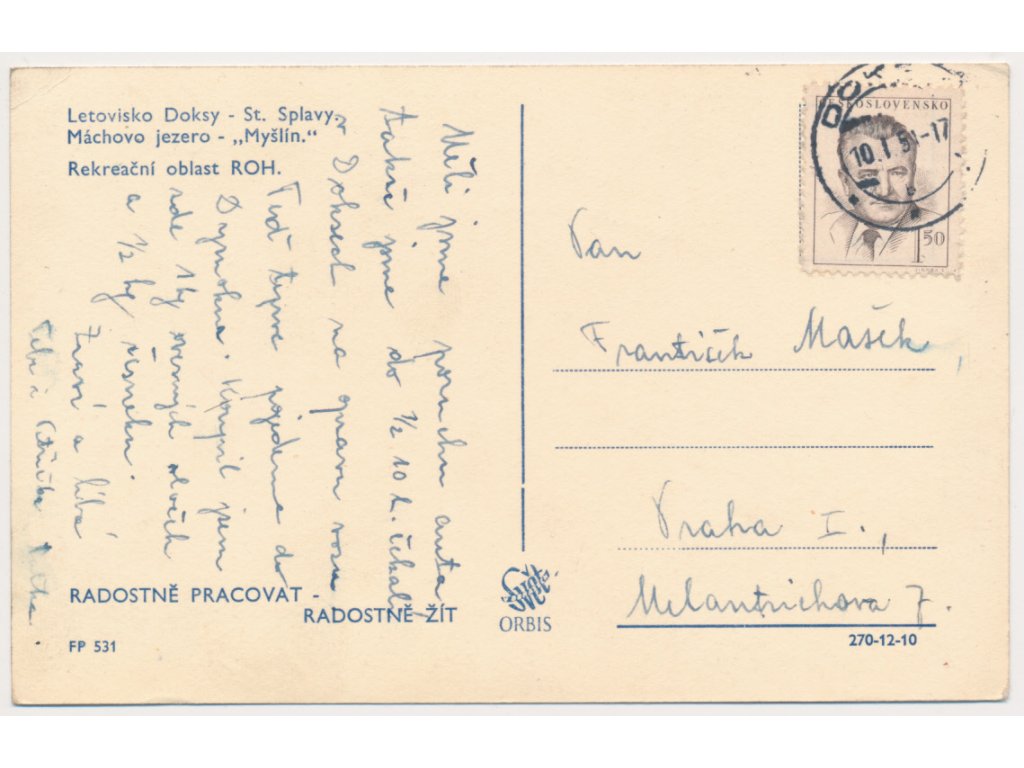 Letovisko Doksy - St. Splavy.
Máchovo jezero - „Myšlín."
Rekreační oblast ROH.
Měli jsme poruchu auta
takže jsme do ½ 10 h. čekali
v Doksech na opravu vozu
Teď teprve pojedeme do
Dymokur. Koupil jsem
zde 1 kg ovčích
a ½ kg
Zdraví a líbá
Tebe i
ČESKOSLOVENSKO
1.50
DOKSY
10.I 51-17
Pan
František Mašek,
Praha I.,
Melantrichova 7.
RADOSTNĚ PRACOVAT -
RADOSTNĚ ŽÍT
FP 531
Svět
ORBIS
270-12-10